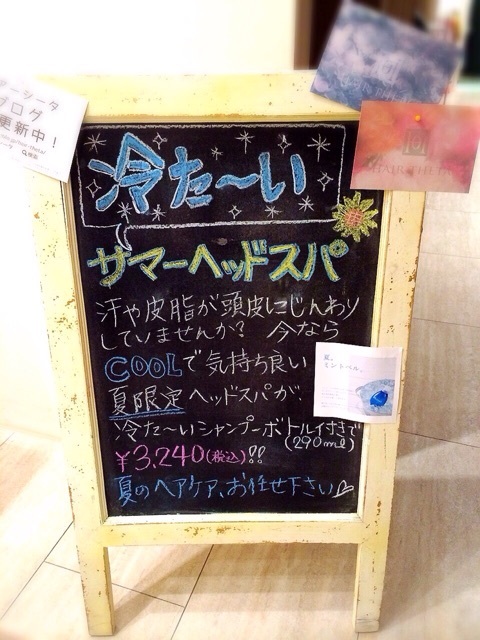 ブログ
更新中！
冷た〜い
サマーヘッドスパ
汗や皮脂が頭皮にじんわり
していませんか？ 今なら
COOLで気持ち良い
夏限定ヘッドスパが
冷た〜いシャンプーボトル付きで
(290ml)
¥3,240(税込)!!
夏のヘアケア、お任せ下さい♡